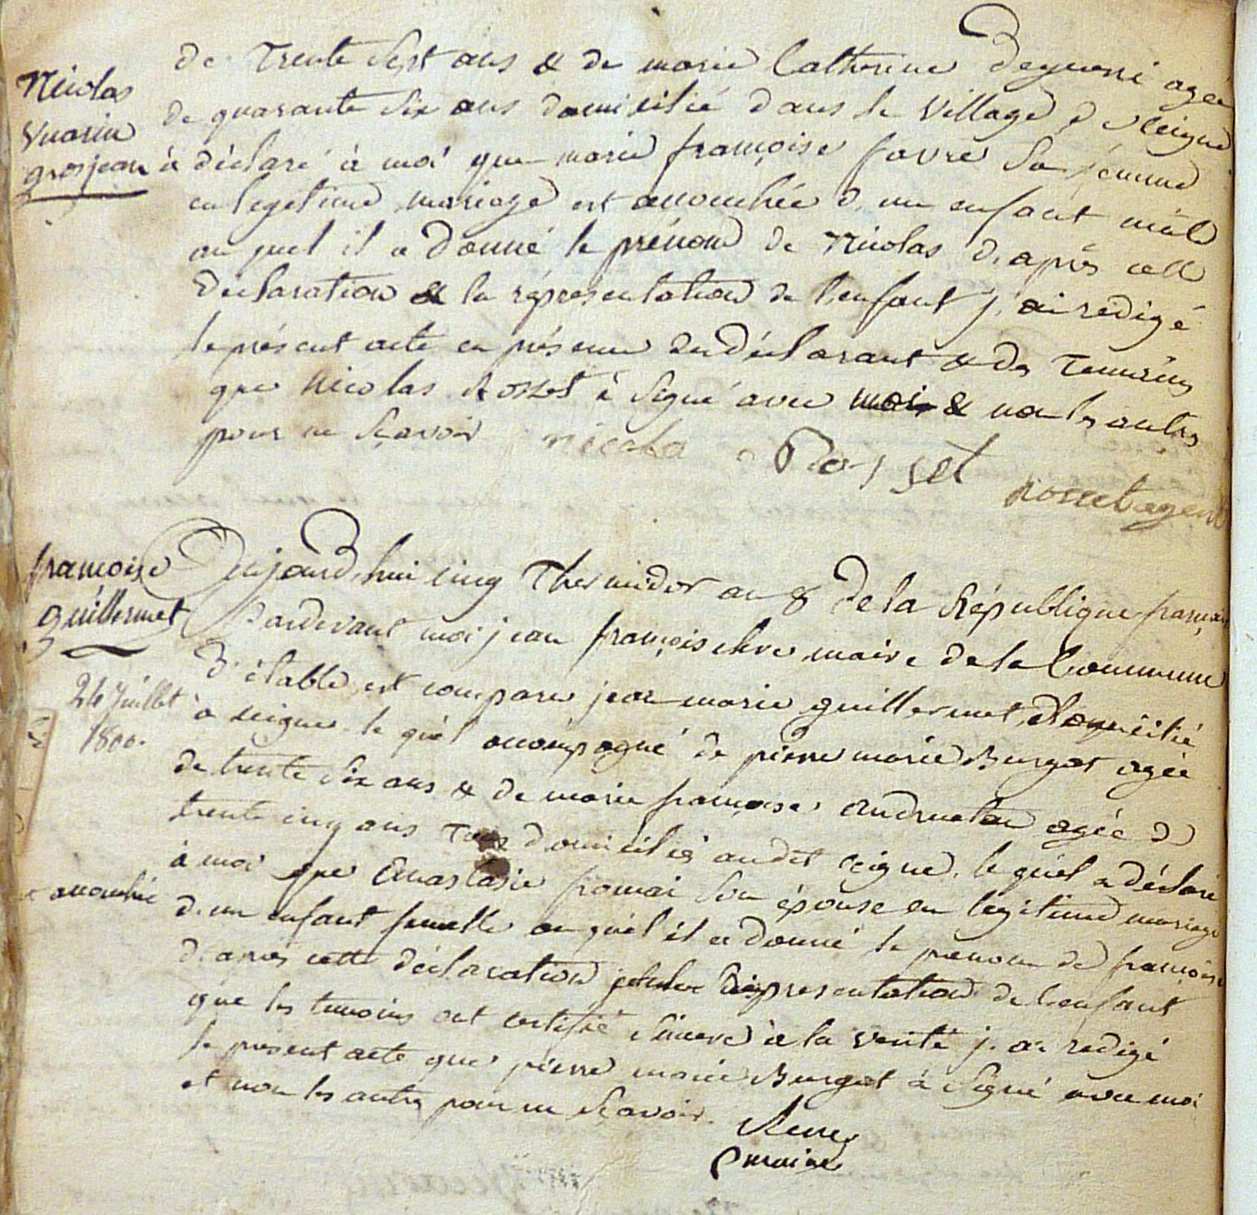 de Trente sept ans & de marie Catherine agée
Nicolas
de quarante six ans domicilié dans le village de ceigne
vuarin
grosjean
à déclaré à moi que marie françoise favre sa femme
en legetime mariage est accouchée d'un enfant mâle
au quel il a donné le prénom de Nicolas d'après cette
declaration & la répresentation de l'enfant j'ai redigé
le présent acte en présence du déclarant & des Temoins
que Nicolas Rosset à signé avec moi & non les autres
pour ne sçavoir nicola Rosset
rosset agent
françoise
guillermet
Aujourd'hui cinq Thermidor an 8 de la République française
Pardevant moi jean françois maire de la Commune
d'étable est comparu jean marie guillermet domicilié
24 Juillet
1800.
à ceigne le quel accompagné de pierre marie Burgat agée
de trente six ans & de marie françoise agée de
trente cinq ans Tous domiciliés audit ceigne, le quel a déclaré
à moi que Anastasie son épouse en legitime mariage
accouchée
d'un enfant femelle au quel il a donné le prenom de françoise
d'après cette déclaration représentation de l'enfant
que les temoins ont certifié sincere à la verité j'ai redigé
le present acte que pierre marie Burgat à signé avec moi
et non les autres pour ne sçavoir.
maire